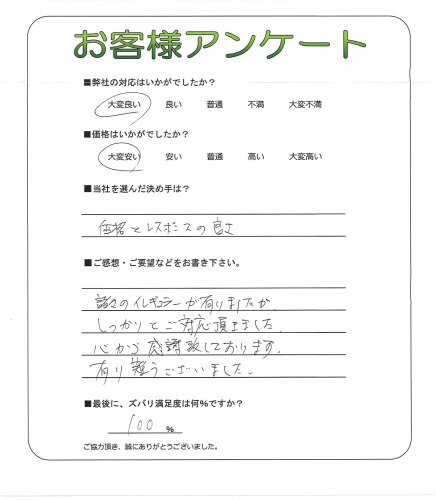 お客様アンケート
■弊社の対応はいかがでしたか？
大変良い 良い 普通 不満 大変不満
■価格はいかがでしたか？
大変安い 安い 普通 高い 大変高い
■当社を選んだ決め手は？
価格とレスポンスの良さ
■ご感想・ご要望などをお書き下さい。
諸々のイレギュラーが有りましたが
しっかりとご対応頂きました。
心から感謝致しております。
有り難うございました。
■最後に、ズバリ満足度は何%ですか？
100 %
ご協力頂き、誠にありがとうございました。